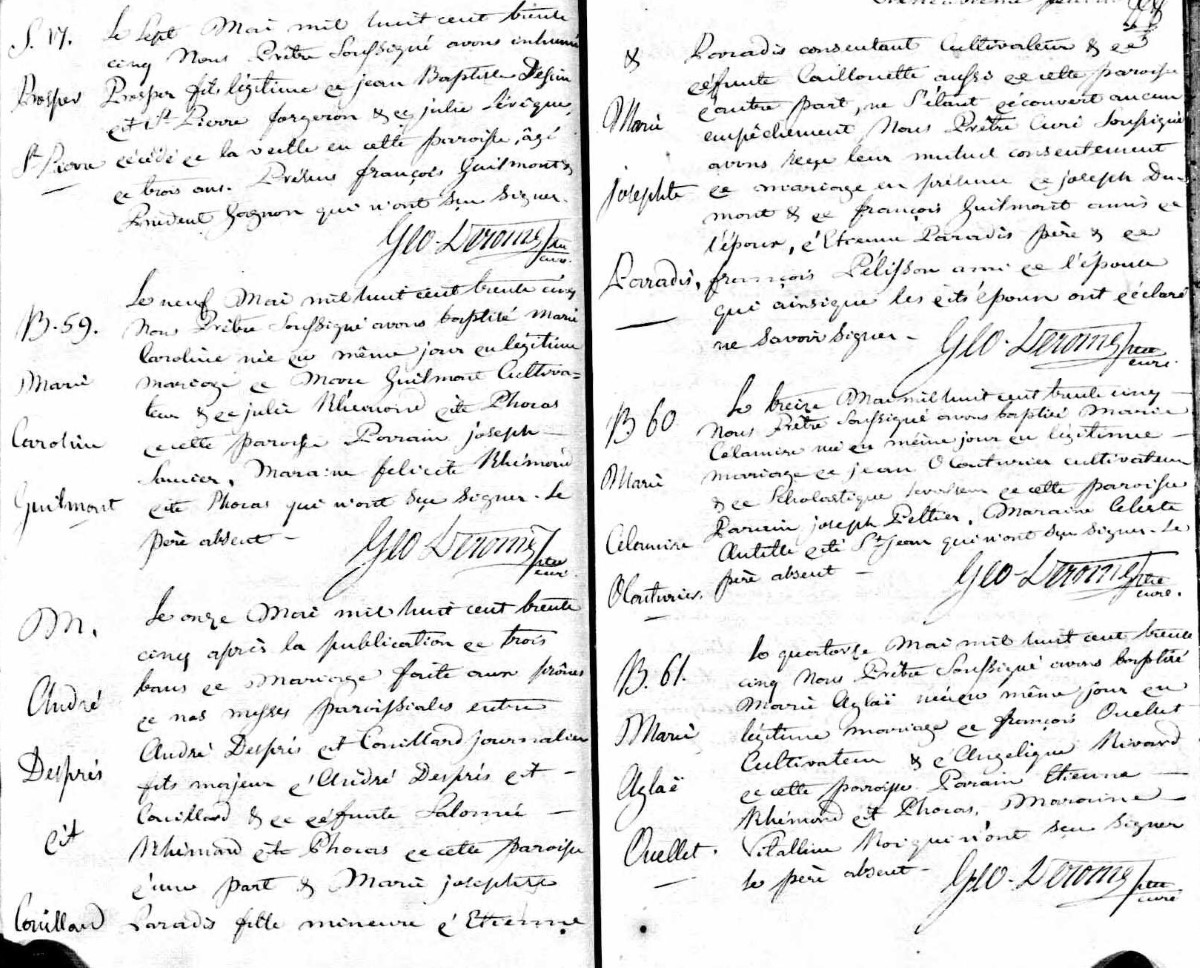 S. 17.
Prosper
St Pierre
Le Sept Mai mil huit cent trente
cinq Nous Prêtre Soussigné avons inhumé
Prosper fils légitime de jean Baptiste
dit St Pierre forgeron & de julie Lévèque,
décédé de la veille en cette paroisse, âgé
de trois ans. Présens françois Guilmont &
Prudent Gagnon qui n'ont sçu signer.
Geo. Derome Ptre
curé.
B. 59.
Marie
Caroline
Guilmont
Le neuf Mai mil huit cent trente cinq
Nous Prêtre Soussigné avons baptisé Marie
Caroline née du même jour en légitime
mariage de Marc Guilmont Cultiva-
teur & de julie Rhéaume dite Phocas
de cette paroisse Parrain joseph
Maraine felicité Rhémard
dite Phocas qui n'ont sçu signer. Le
père absent -
Geo Derome Ptre
curé.
M.
André
Desprès
dit
Couillard
Le onze Mai mil huit cent trente
cinq après la publication de trois
bans de Mariage faite aux prônes
de nos messes paroissiales entre
André Després dit Couillard journalier
fils majeur d'André Després dit -
Couillard & de défunte Salomée -
Rhémard dite Phocas de cette paroisse
d'une part & Marie josephte
Paradis fille mineure d'Etienne
&
Marie
josephte
Paradis,
Paradis consentant Cultivateur & de
défunte Caillouette aussi de cette paroisse
d'autre part, ne s'étant découvert aucun
empêchement Nous Prêtre Curé Soussigné
avons reçu leur mutuel consentement
de mariage en présence de joseph Du-
mont & de françois Guilmont amis de
l'époux, d'Etienne Paradis père & de
françois Pélisson ami de l'épouse
qui ainsique les dits époux ont déclaré
ne savoir signer -
Geo. Derome Ptre
curé.
B 60
Marie
Célamire
Olouturier.
Le treize Mai mil huit cent trente cinq -
Nous Prêtre Soussigné avons baptisé Marie
Célamire née du même jour en légitime -
mariage de jean Olouturier cultivateur
& de Scholastique de cette paroisse
Parrain joseph Peltier, Maraine Celeste
dite St jean qui n'ont sçu signer. Le
père absent -
Geo. Derome Ptre
curé.
B. 61.
Marie
Aglaë
Ouellet.
Le quatorze Mai mil huit cent trente
cinq Nous Prêtre Soussigné avons baptisé
Marie Aglaë née du même jour en
légitime mariage de françois Ouellet
Cultivateur & d'Angelique Rivard
de cette paroisse Parain Etienne -
Rhémard dit Phocas, Maraine -
Vitalline Roi qui n'ont sçu signer
le père absent -
Geo. Derome Ptre
curé